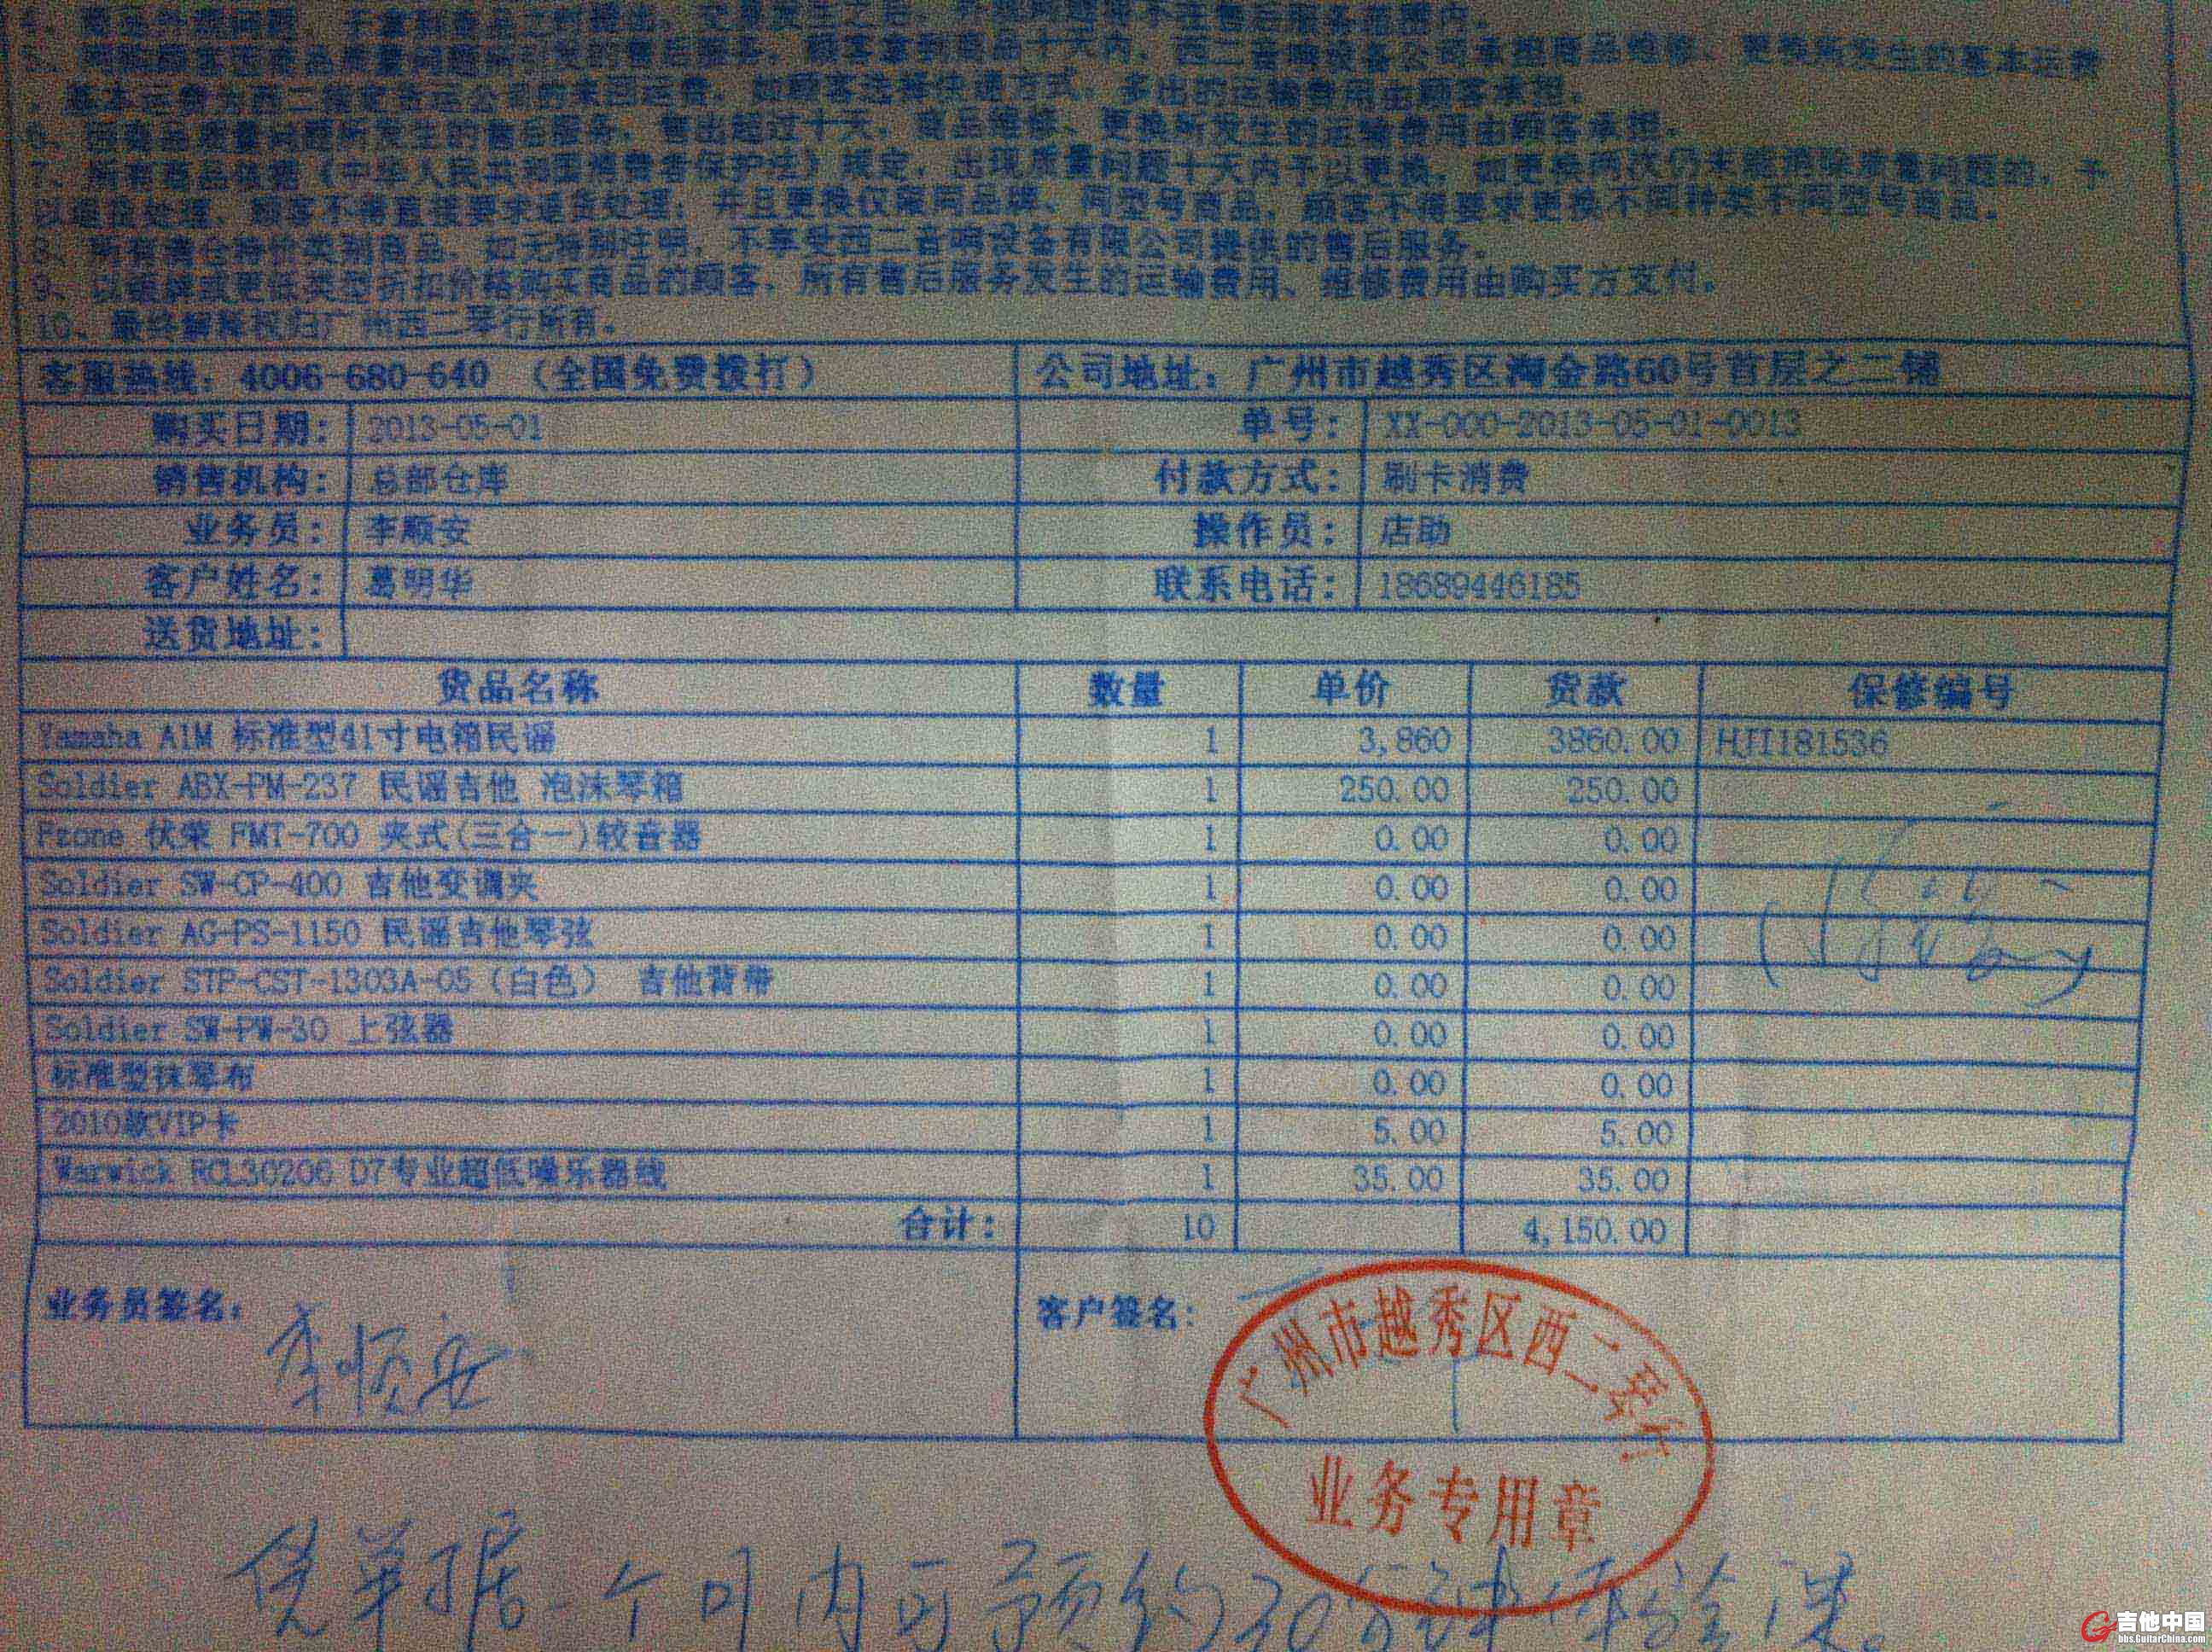 基本运费为西二指定货运公司的来回运费，如顾客选择快递方式，多出的运输费用由顾客承担。
6、因商品质量问题所发生的售后服务，售出超过十天，商品维修、更换所发生的运输费用由顾客承担。
7、所有商品根据《中华人民共和国消费者保护法》规定，出现质量问题十天内予以更换，如更换两次仍未能消除质量问题的，予
以退货处理，顾客不得直接要求退货处理；并且更换仅限同品牌、同型号商品，顾客不得要求更换不同种类不同型号商品。
不享受西二音响设备有限公司提供的售后服务。
所有售后服务发生的运输费用、维修费用由购买方支付。
10、最终解释权归广州西二琴行所有。
客服热线：4006-680-640 （全国免费拨打） 公司地址：广州市越秀区淘金路60号首层之二铺
购买日期： 2013-05-01 单号： XX-000-2013-05-01-0013
销售机构： 总部仓库 付款方式： 刷卡消费
业务员： 李顺安 操作员： 店助
客户姓名： 葛明华 联系电话： 18689446185
送货地址：
货品名称 数量 单价 货款 保修编号
Yamaha A1M 标准型41寸电箱民谣 1 3,860 3860.00 HJI181536
Soldier ABX-PM-237 民谣吉他 泡沫琴箱 1 250.00 250.00
Fzone 伏荣 FMT-700 夹式(三合一)较音器 1 0.00 0.00
Soldier SW-CP-400 吉他变调夹 1 0.00 0.00
Soldier AG-PS-1150 民谣吉他琴弦 1 0.00 0.00
Soldier STP-CST-1303A-05（白色） 吉他背带 1 0.00 0.00
Soldier SW-PW-30 上弦器 1 0.00 0.00
标准型抹琴布 1 0.00 0.00
2010款VIP卡 1 5.00 5.00
Warwick RCL30206 D7专业超低噪乐器线 1 35.00 35.00
合计： 10 4,150.00
业务员签名： 李顺安 客户签名：
广州市越秀区西二琴行
业务专用章
凭单据一个月内可预约30分钟体验课。
吉他中国
bbs.GuitarChina.com